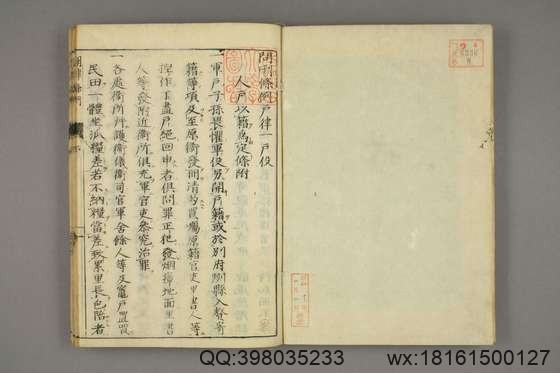 問刑條例戶律一戶役
人戶以籍為定條附
一軍戶子孫畏懼軍役另開戶籍或於別府州縣入贅寄
籍等項及至原衛發冊清勾買囑原籍官吏里書人等
捏作丁盡戶絕回申者俱問罪正犯發烟瘴地面里書
人等發附近衛所俱充軍官吏參究治罪
一各處衛所并護衛儀衛司官軍舍餘人等及竈戶置買
民田一體坐派糧差若不納糧當差致累里長包賠者
QQ:398035233
wx:18161500127